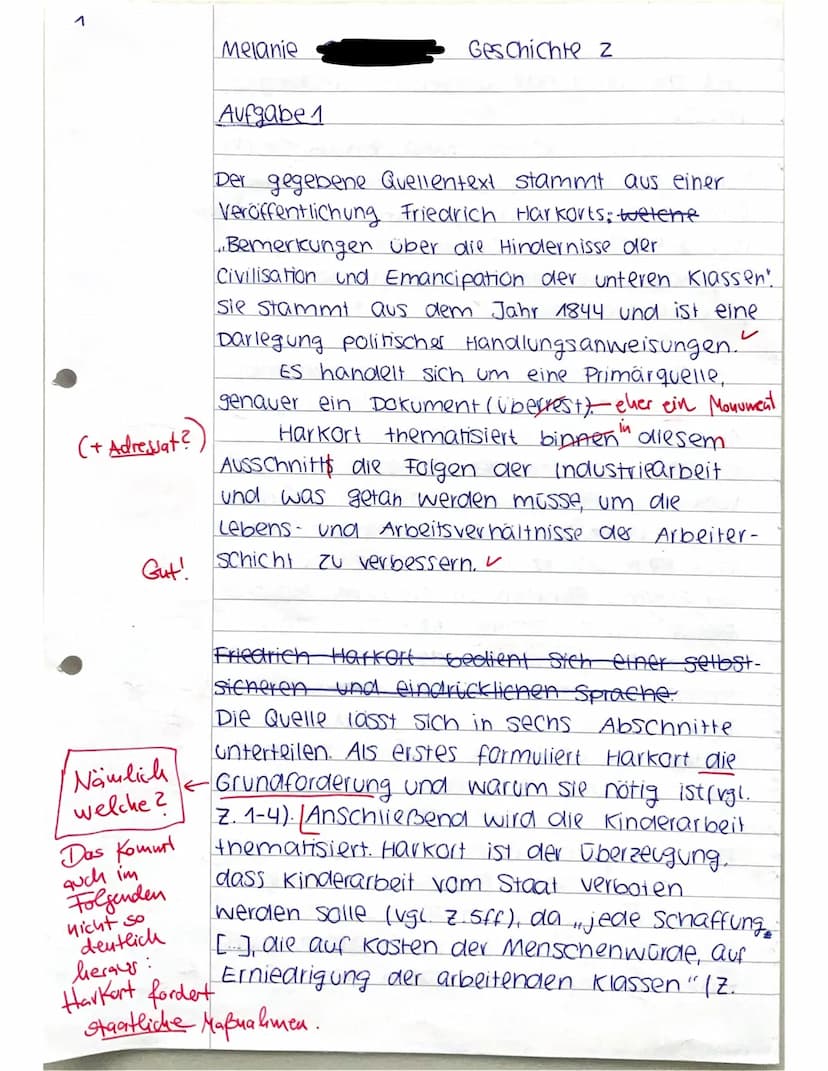 1
Melanie Geschichte 2
Aufgabe 1
Der gegebene Quellentext stammt aus einer
Veröffentlichung Friedrich Harkorts: welche
„Bemerkungen über die Hindernisse der
Civilisation und Emancipation der unteren Klassen".
Sie stammt aus dem Jahr 1844 und ist eine
Darlegung politischer Handlungsanweisungen. ✓
Es handelt sich um eine Primärquelle,
genauer ein Dokument (Überrest). eher ein Monument
(+ Adressat?)
Harkort thematisiert binnen in diesem
Ausschnitts die Folgen der Industriearbeit
und was getan werden müsse, um die
Lebens- und Arbeitsverhältnisse der Arbeiter-
schicht zu verbessern. ✓
Gut!
Friedrich Harkort bedient sich einer selbst-
sicheren und eindrücklichen Sprache.
Die Quelle lässt sich in sechs Abschnitte
unterteilen. Als erstes formuliert Harkort die
Grundforderung und warum sie nötig ist (vgl.
Z. 1-4). Anschließend wird die Kinderarbeit
thematisiert. Harkort ist der Überzeugung,
dass Kinderarbeit vom Staat verboten
werden solle (vgl. Z. 5ff), da „jede Schaffung,
[...], die auf Kosten der Menschenwürde, auf
Erniedrigung der arbeitenden Klassen" (Z.
Nämlich
welche?
Das kommt
auch im
Folgenden
nicht so
deutlich
heraus:
Harkort fordert
staatliche Maßnahmen.